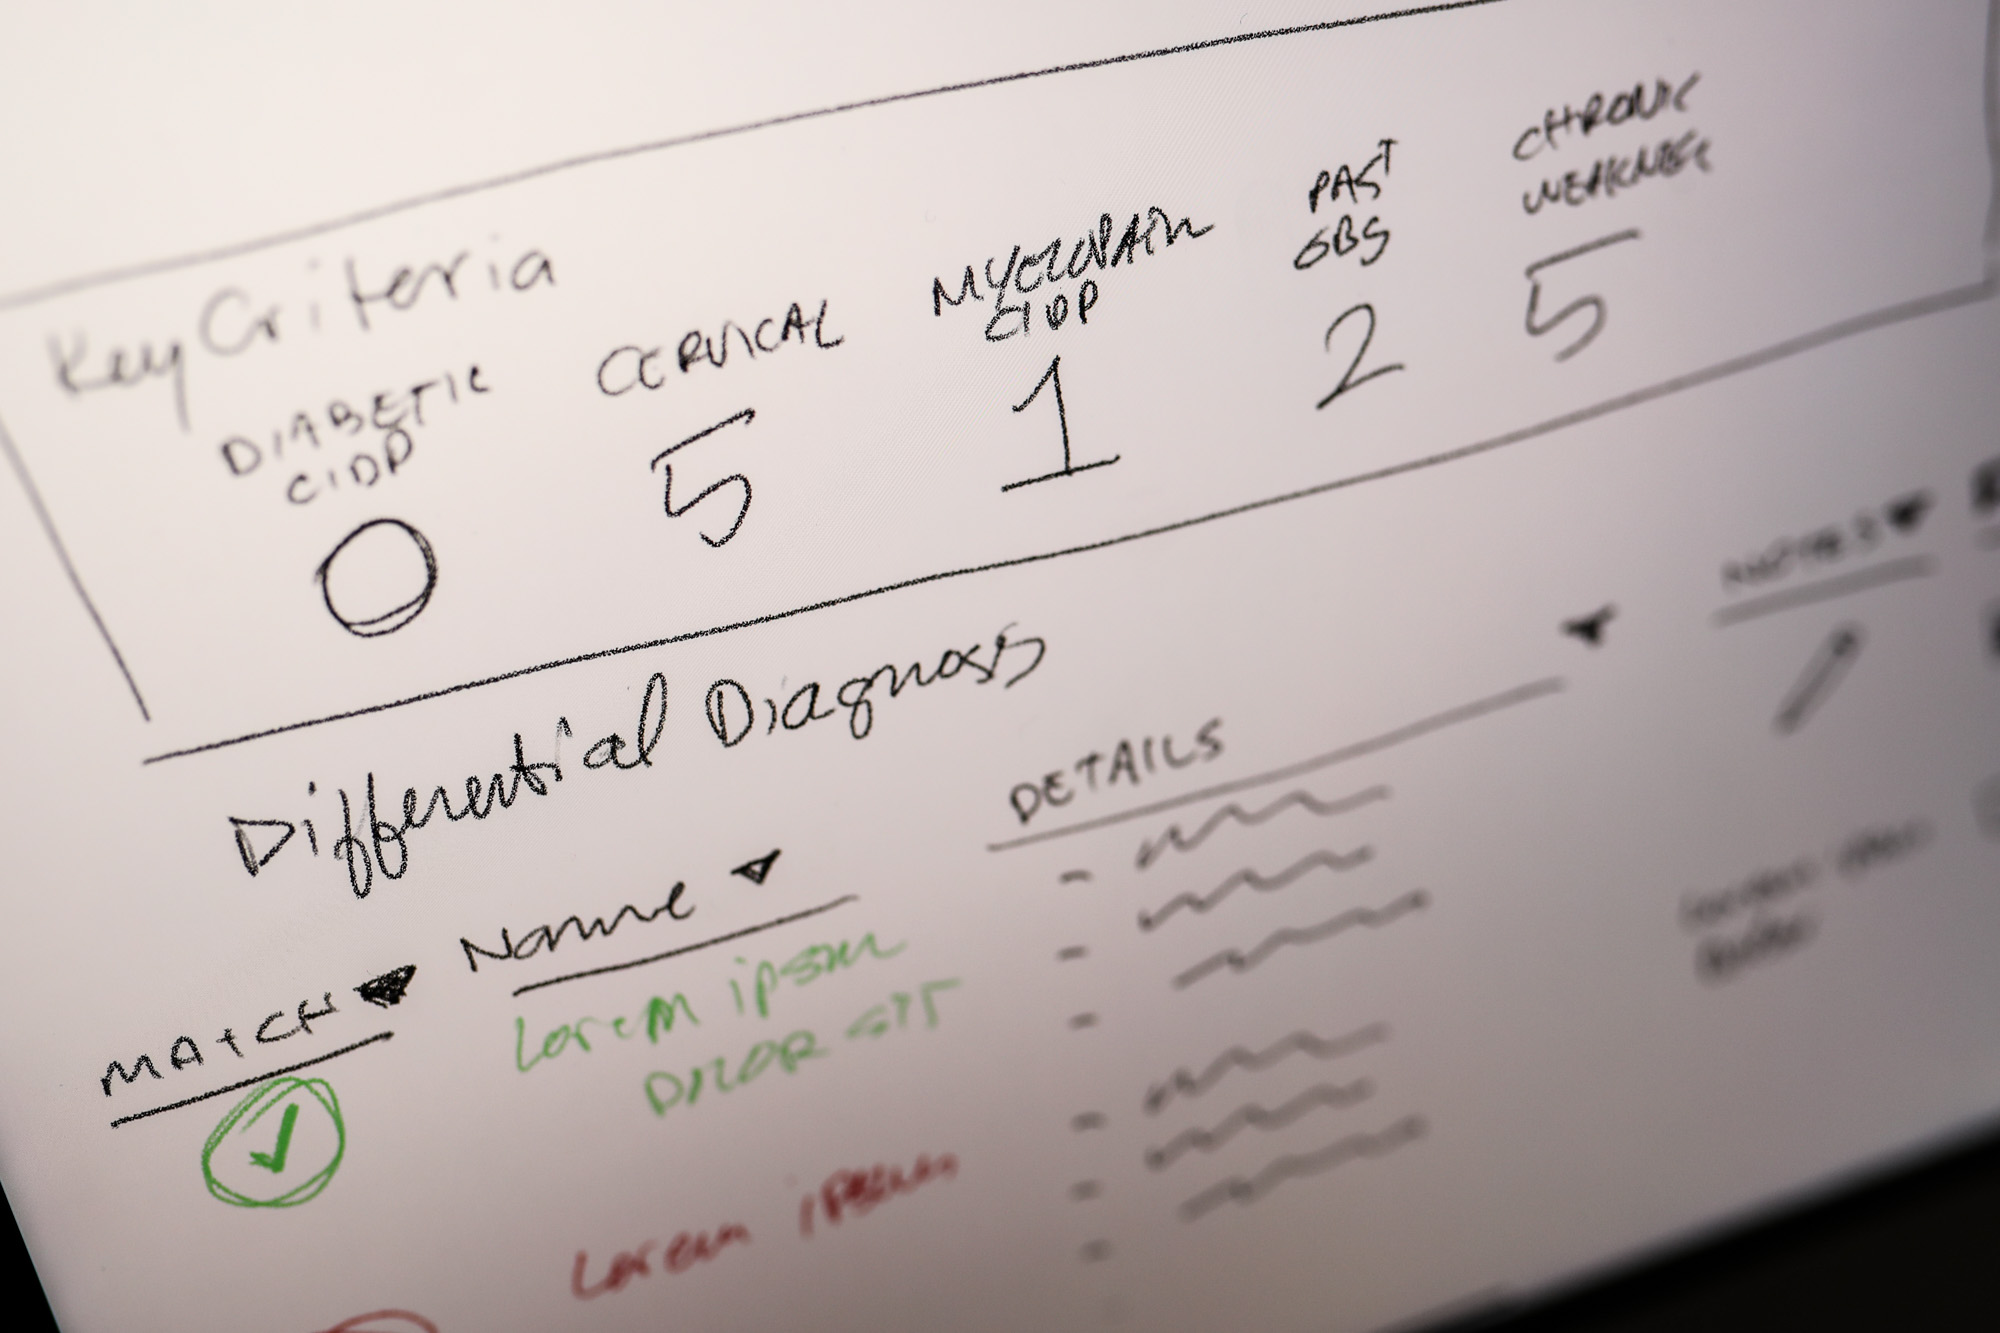 Key Criteria
DIABETIC
CIDP
0
CERVICAL
5
MYELOPATH
CIDP
1
PAST
GBS
2
CHRONIC
WEAKNESS
5
Differential Diagnosis
MATCH
Name
DETAILS
NOTES
Lorem ipsum
DOLOR SIT
Lorem ipsum